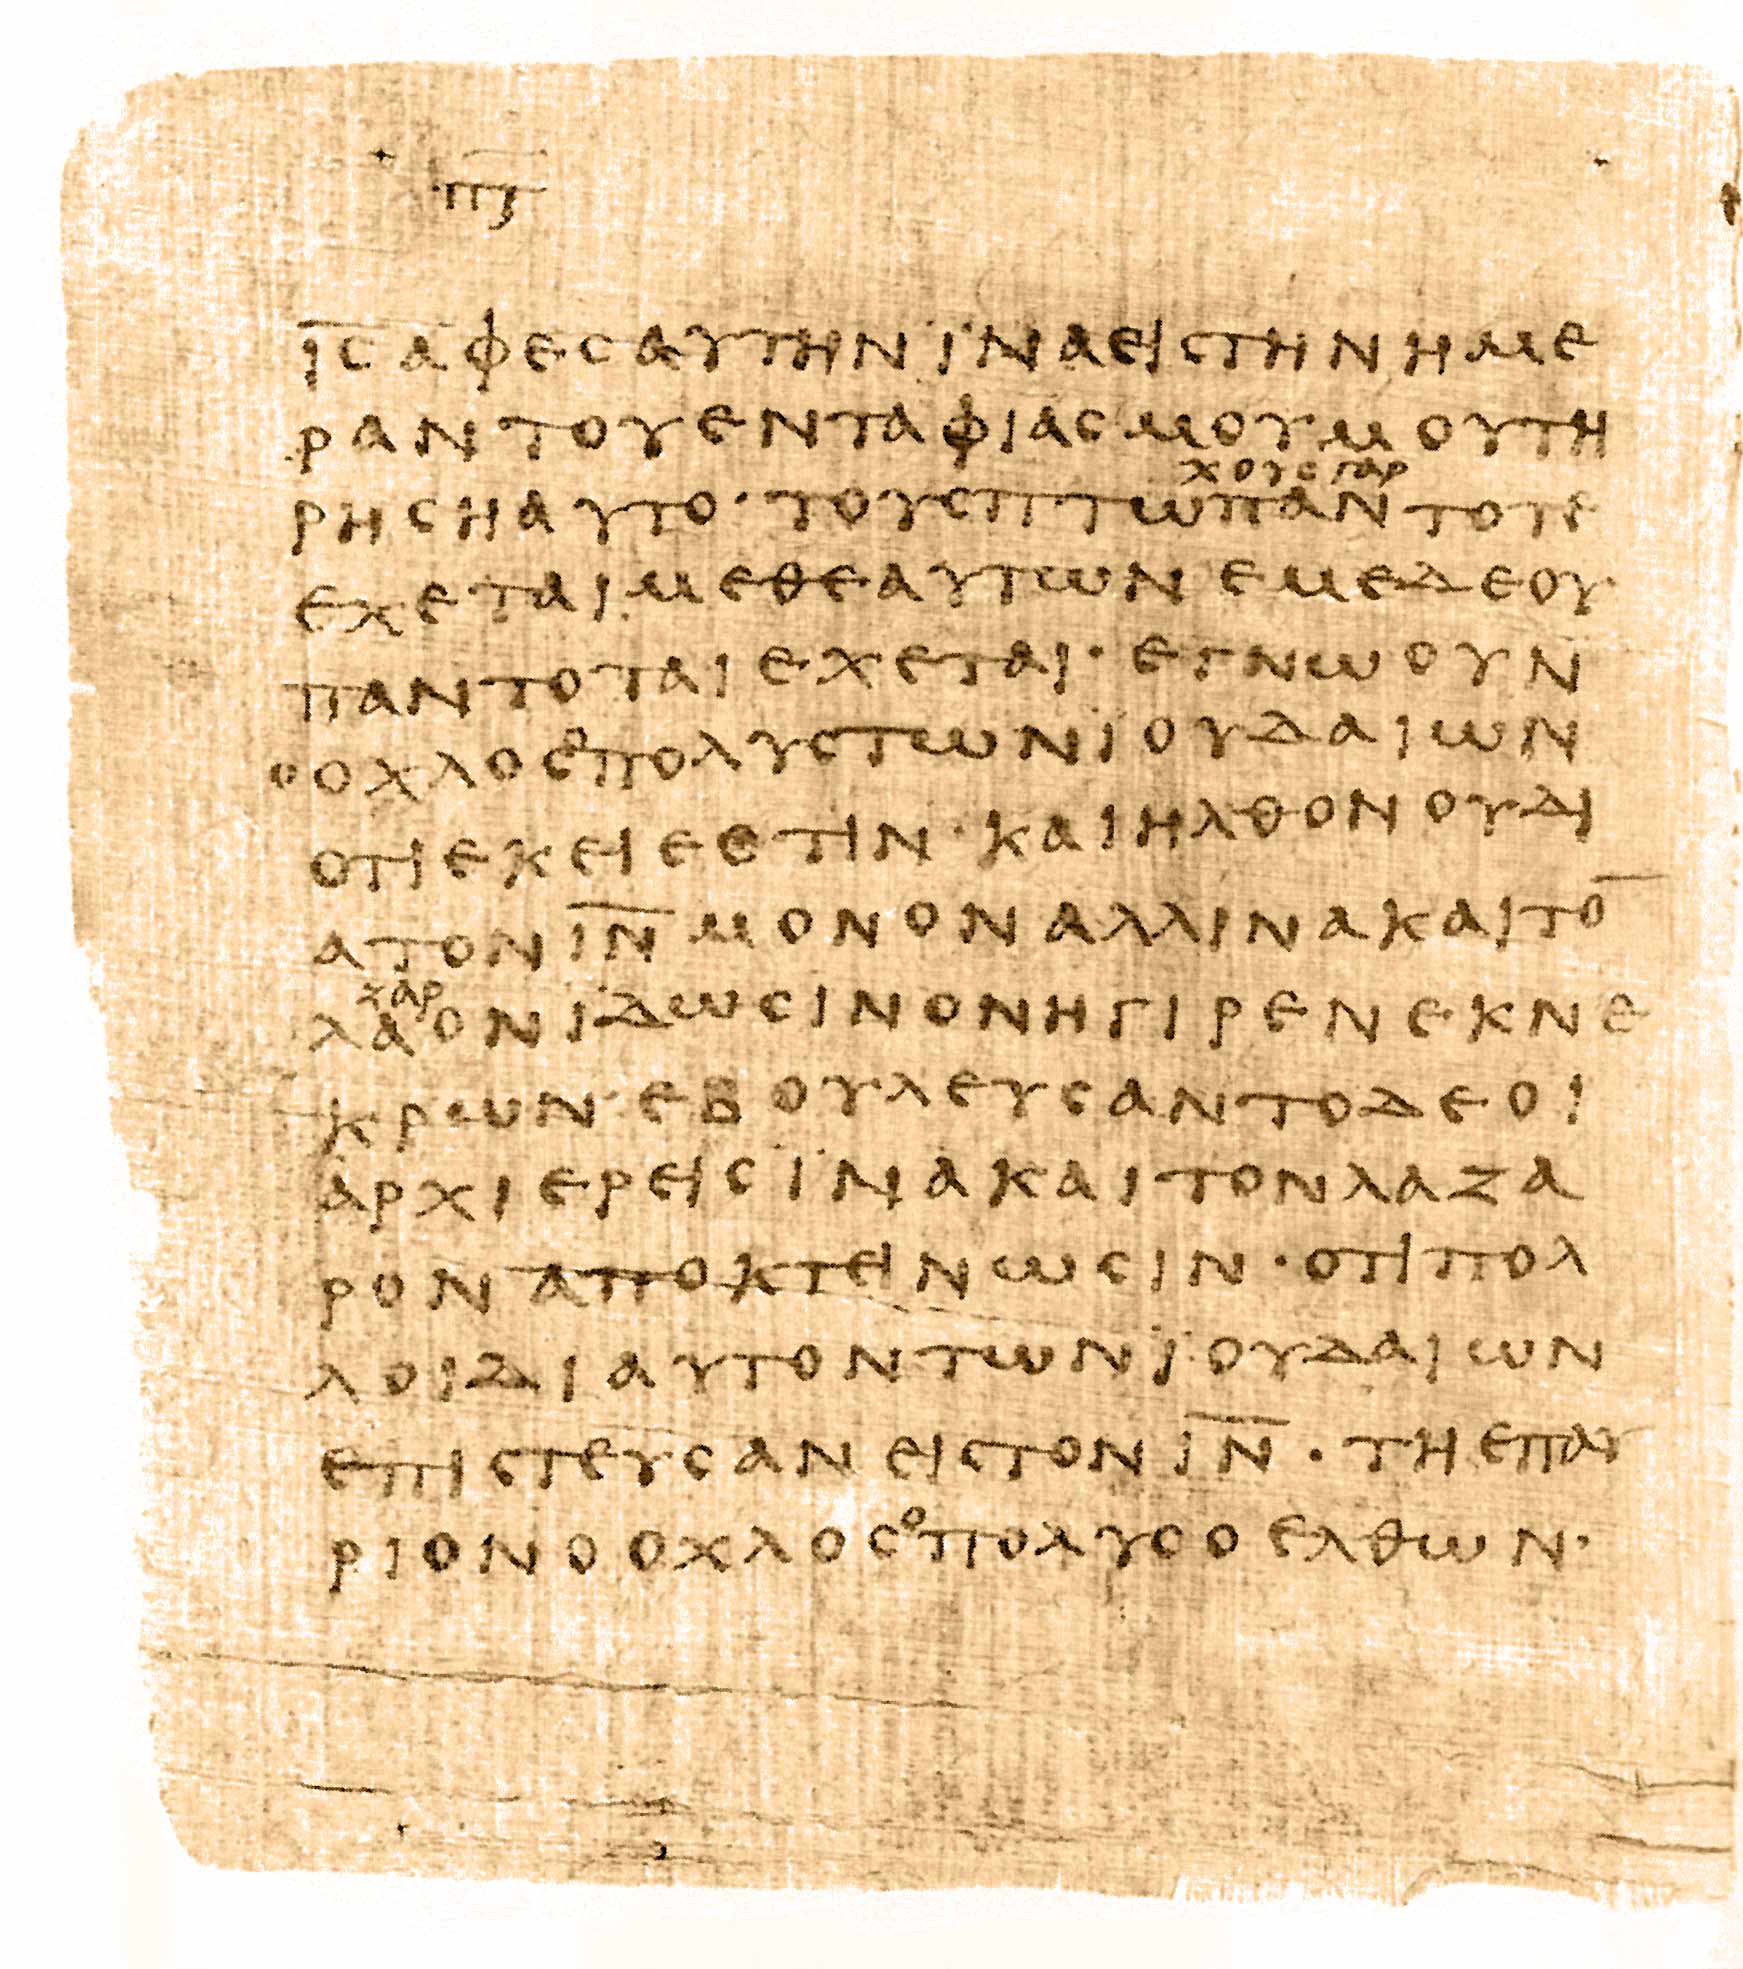 π̅ϛ̅
ι̅ς̅ αφεσαυτηνϊναειστηνημε
ραντουενταφιασμουμουτη
χουσγαρ
ρησηαυτο·τουσπτωπαντοτε
εχεταιμεθεαυτωνεμεδεου
παντοταιεχεται·εγνωουν
ο
οοχλοσπολυστωνϊουδαιων
οτιεκειεστιν·καιηλθονουδι
ατονι̅ν̅μονοναλλιντακαιτο̅
ζαρ
λαονϊδωσινονηγιρενεκνε
κρων·εβουλευσαντοδεοι
αρχιερεισϊνακαιτονλαζα
ροναποκτεινωσιν·οτιπολ
λοιδιαυτοντωνϊουδαιων
επιστευσανειστονι̅ν̅·τηεπαυ
ο
ριονοοχλοσπολυσοελθων·